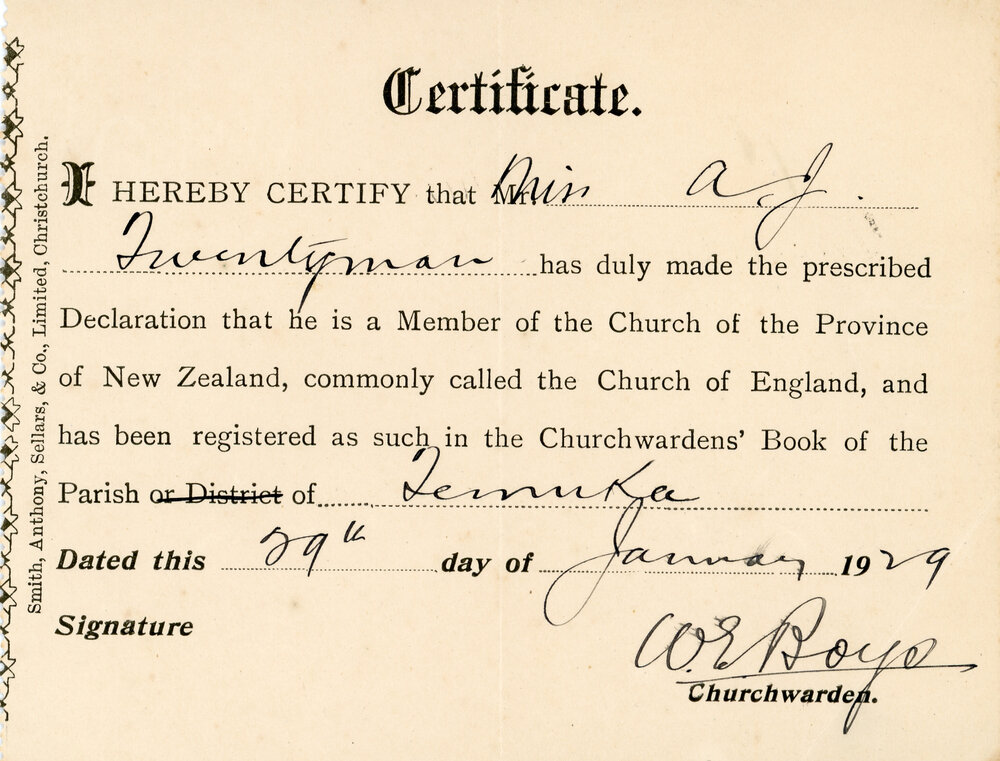 Certificate.
I HEREBY CERTIFY that Mr. Miss A. J.
Twentyman has duly made the prescribed
Declaration that he is a Member of the Church of the Province
of New Zealand, commonly called the Church of England, and
has been registered as such in the Churchwardens' Book of the
Parish or District of Temuka
Dated this 29th day of January 1929
Signature
W. E. Boys
Churchwarden.
Smith, Anthony, Sellars, & Co., Limited, Christchurch.